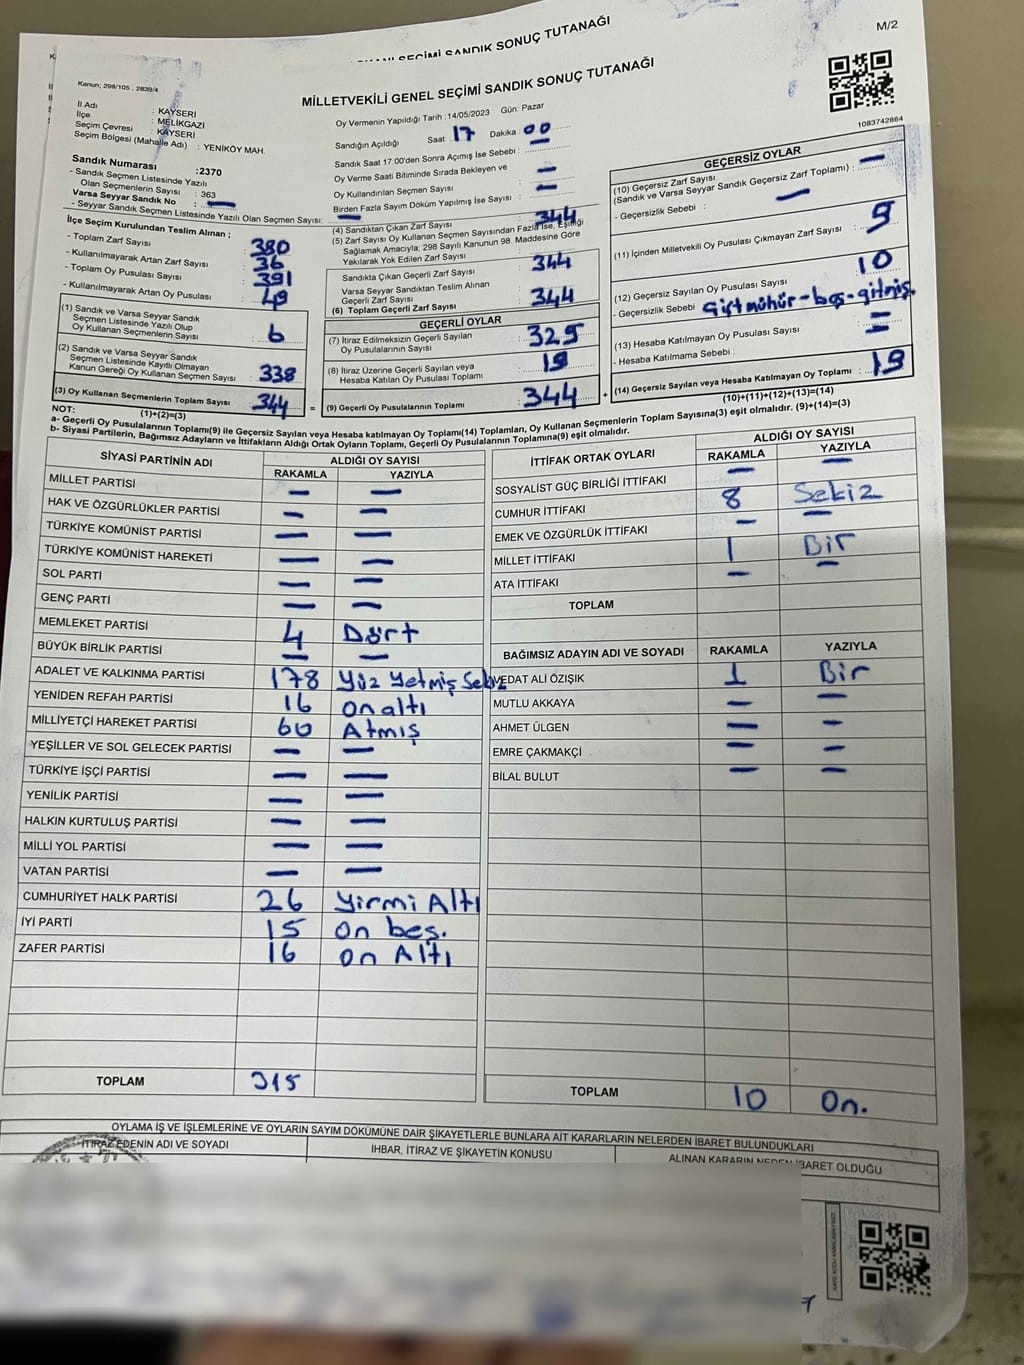 M/2
MİLLETVEKİLİ GENEL SEÇİMİ SANDIK SONUÇ TUTANAĞI
SANDIK SONUÇ TUTANAĞI
Kanun; 298/105 , 2839/4
1083742864
İl Adı : KAYSERİ
İlçe : MELİKGAZİ
Seçim Çevresi : KAYSERİ
Seçim Bölgesi (Mahalle Adı) : YENİKÖY MAH.
Sandık Numarası :2370
- Sandık Seçmen Listesinde Yazılı
Olan Seçmenlerin Sayısı : 363
Varsa Seyyar Sandık No : —
- Seyyar Sandık Seçmen Listesinde Yazılı Olan Seçmen Sayısı: —
İlçe Seçim Kurulundan Teslim Alınan ;
- Toplam Zarf Sayısı 380
- Kullanılmayarak Artan Zarf Sayısı : 36
- Toplam Oy Pusulası Sayısı : 391
- Kullanılmayarak Artan Oy Pusulası : 49
(1) Sandık ve Varsa Seyyar Sandık
Seçmen Listesinde Yazılı Olup
Oy Kullanan Seçmenlerin Sayısı : 6
(2) Sandık ve Varsa Seyyar Sandık
Seçmen Listesinde Kayıtlı Olmayan
Kanun Gereği Oy Kullanan Seçmen Sayısı : 338
(3) Oy Kullanan Seçmenlerin Toplam Sayısı : 344
(1)+(2)=(3)
Oy Vermenin Yapıldığı Tarih :14/05/2023 Gün: Pazar
Sandığın Açıldığı Saat 17 Dakika : 00
Sandık Saat 17:00'den Sonra Açımış İse Sebebi : —
Oy Verme Saati Bitiminde Sırada Bekleyen ve
Oy Kullandırılan Seçmen Sayısı : —
Birden Fazla Sayım Döküm Yapılmış İse Sayısı : —
(4) Sandıktan Çıkan Zarf Sayısı : 344
(5) Zarf Sayısı Oy Kullanan Seçmen Sayısından Fazla İse, Eşitliği
Sağlamak Amacıyla; 298 Sayılı Kanunun 98. Maddesine Göre
Yakılarak Yok Edilen Zarf Sayısı
Sandıkta Çıkan Geçerli Zarf Sayısı : 344
Varsa Seyyar Sandıktan Teslim Alınan
Geçerli Zarf Sayısı
(6) Toplam Geçerli Zarf Sayısı : 344
GEÇERLİ OYLAR
(7) İtiraz Edilmeksizin Geçerli Sayılan
Oy Pusulalarının Sayısı : 325
(8) İtiraz Üzerine Geçerli Sayılan veya
Hesaba Katılan Oy Pusulası Toplamı : 19
= (9) Geçerli Oy Pusulalarının Toplamı : 344
GEÇERSİZ OYLAR
(10) Geçersiz Zarf Sayısı
(Sandık ve Varsa Seyyar Sandık Geçersiz Zarf Toplamı) : —
- Geçersizlik Sebebi : —
(11) İçinden Milletvekili Oy Pusulası Çıkmayan Zarf Sayısı : 9
(12) Geçersiz Sayılan Oy Pusulası Sayısı : 10
- Geçersizlik Sebebi Çift mühür-boş-çitmiş.
(13) Hesaba Katılmayan Oy Pusulası Sayısı : —
- Hesaba Katılmama Sebebi : —
+ (14) Geçersiz Sayılan veya Hesaba Katılmayan Oy Toplamı : 19
(10)+(11)+(12)+(13)=(14)
NOT:
a- Geçerli Oy Pusulalarının Toplamı(9) ile Geçersiz Sayılan veya Hesaba katılmayan Oy Toplamı(14) Toplamları, Oy Kullanan Seçmenlerin Toplam Sayısına(3) eşit olmalıdır. (9)+(14)=(3)
b- Siyasi Partilerin, Bağımsız Adayların ve İttifakların Aldığı Ortak Oyların Toplamı, Geçerli Oy Pusulalarının Toplamına(9) eşit olmalıdır.
SİYASİ PARTİNİN ADI ALDIĞI OY SAYISI
RAKAMLA YAZIYLA
MİLLET PARTİSİ — —
HAK VE ÖZGÜRLÜKLER PARTİSİ — —
TÜRKİYE KOMÜNİST PARTİSİ — —
TÜRKİYE KOMÜNİST HAREKETİ — —
SOL PARTİ — —
GENÇ PARTİ — —
MEMLEKET PARTİSİ 4 Dört
BÜYÜK BİRLİK PARTİSİ — —
ADALET VE KALKINMA PARTİSİ 178 Yüz Yetmiş Sekiz
YENİDEN REFAH PARTİSİ 16 on altı
MİLLİYETÇİ HAREKET PARTİSİ 60 Atmış
YEŞİLLER VE SOL GELECEK PARTİSİ — —
TÜRKİYE İŞÇİ PARTİSİ — —
YENİLİK PARTİSİ — —
HALKIN KURTULUŞ PARTİSİ — —
MİLLİ YOL PARTİSİ — —
VATAN PARTİSİ — —
CUMHURİYET HALK PARTİSİ 26 Yirmi Altı
İYİ PARTİ 15 On beş.
ZAFER PARTİSİ 16 on Altı
TOPLAM 315
İTTİFAK ORTAK OYLARI ALDIĞI OY SAYISI
RAKAMLA YAZIYLA
SOSYALİST GÜÇ BİRLİĞİ İTTİFAKI — —
CUMHUR İTTİFAKI 8 Sekiz
EMEK VE ÖZGÜRLÜK İTTİFAKI — —
MİLLET İTTİFAKI 1 Bir
ATA İTTİFAKI — —
TOPLAM
BAĞIMSIZ ADAYIN ADI VE SOYADI RAKAMLA YAZIYLA
VEDAT ALİ ÖZIŞIK 1 Bir
MUTLU AKKAYA — —
AHMET ÜLGEN — —
EMRE ÇAKMAKÇİ — —
BİLAL BULUT — —
TOPLAM 10 On.
OYLAMA İŞ VE İŞLEMLERİNE VE OYLARIN SAYIM DÖKÜMÜNE DAİR ŞİKAYETLERLE BUNLARA AİT KARARLARIN NELERDEN İBARET BULUNDUKLARI
İTİRAZ EDENİN ADI VE SOYADI
İHBAR, İTİRAZ VE ŞİKAYETİN KONUSU
ALINAN KARARIN NEDEN İBARET OLDUĞU